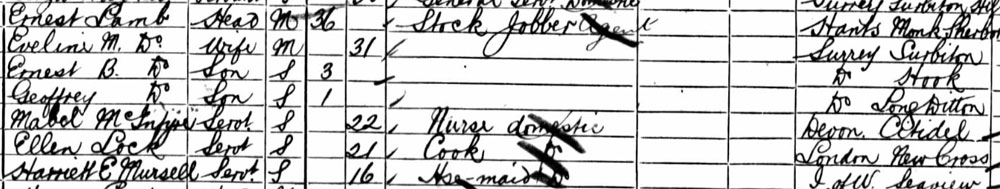 Ernest Lamb Head M 36 Stock Jobber Agent Hants Monk Sherbor
Eveline M. Do Wife M 31 Surrey Surbiton
Ernest B. Do Son S 3 Do Hook
Geoffrey Do Son S 1 Do Long Ditton
Mabel Servt S 22 Nurse domestic Devon.
Ellen Lock Servt S 21 Cook Do London New Cross
Harriett E Mursell Servt. S 16 Hse-maid Do I of W. Seaview